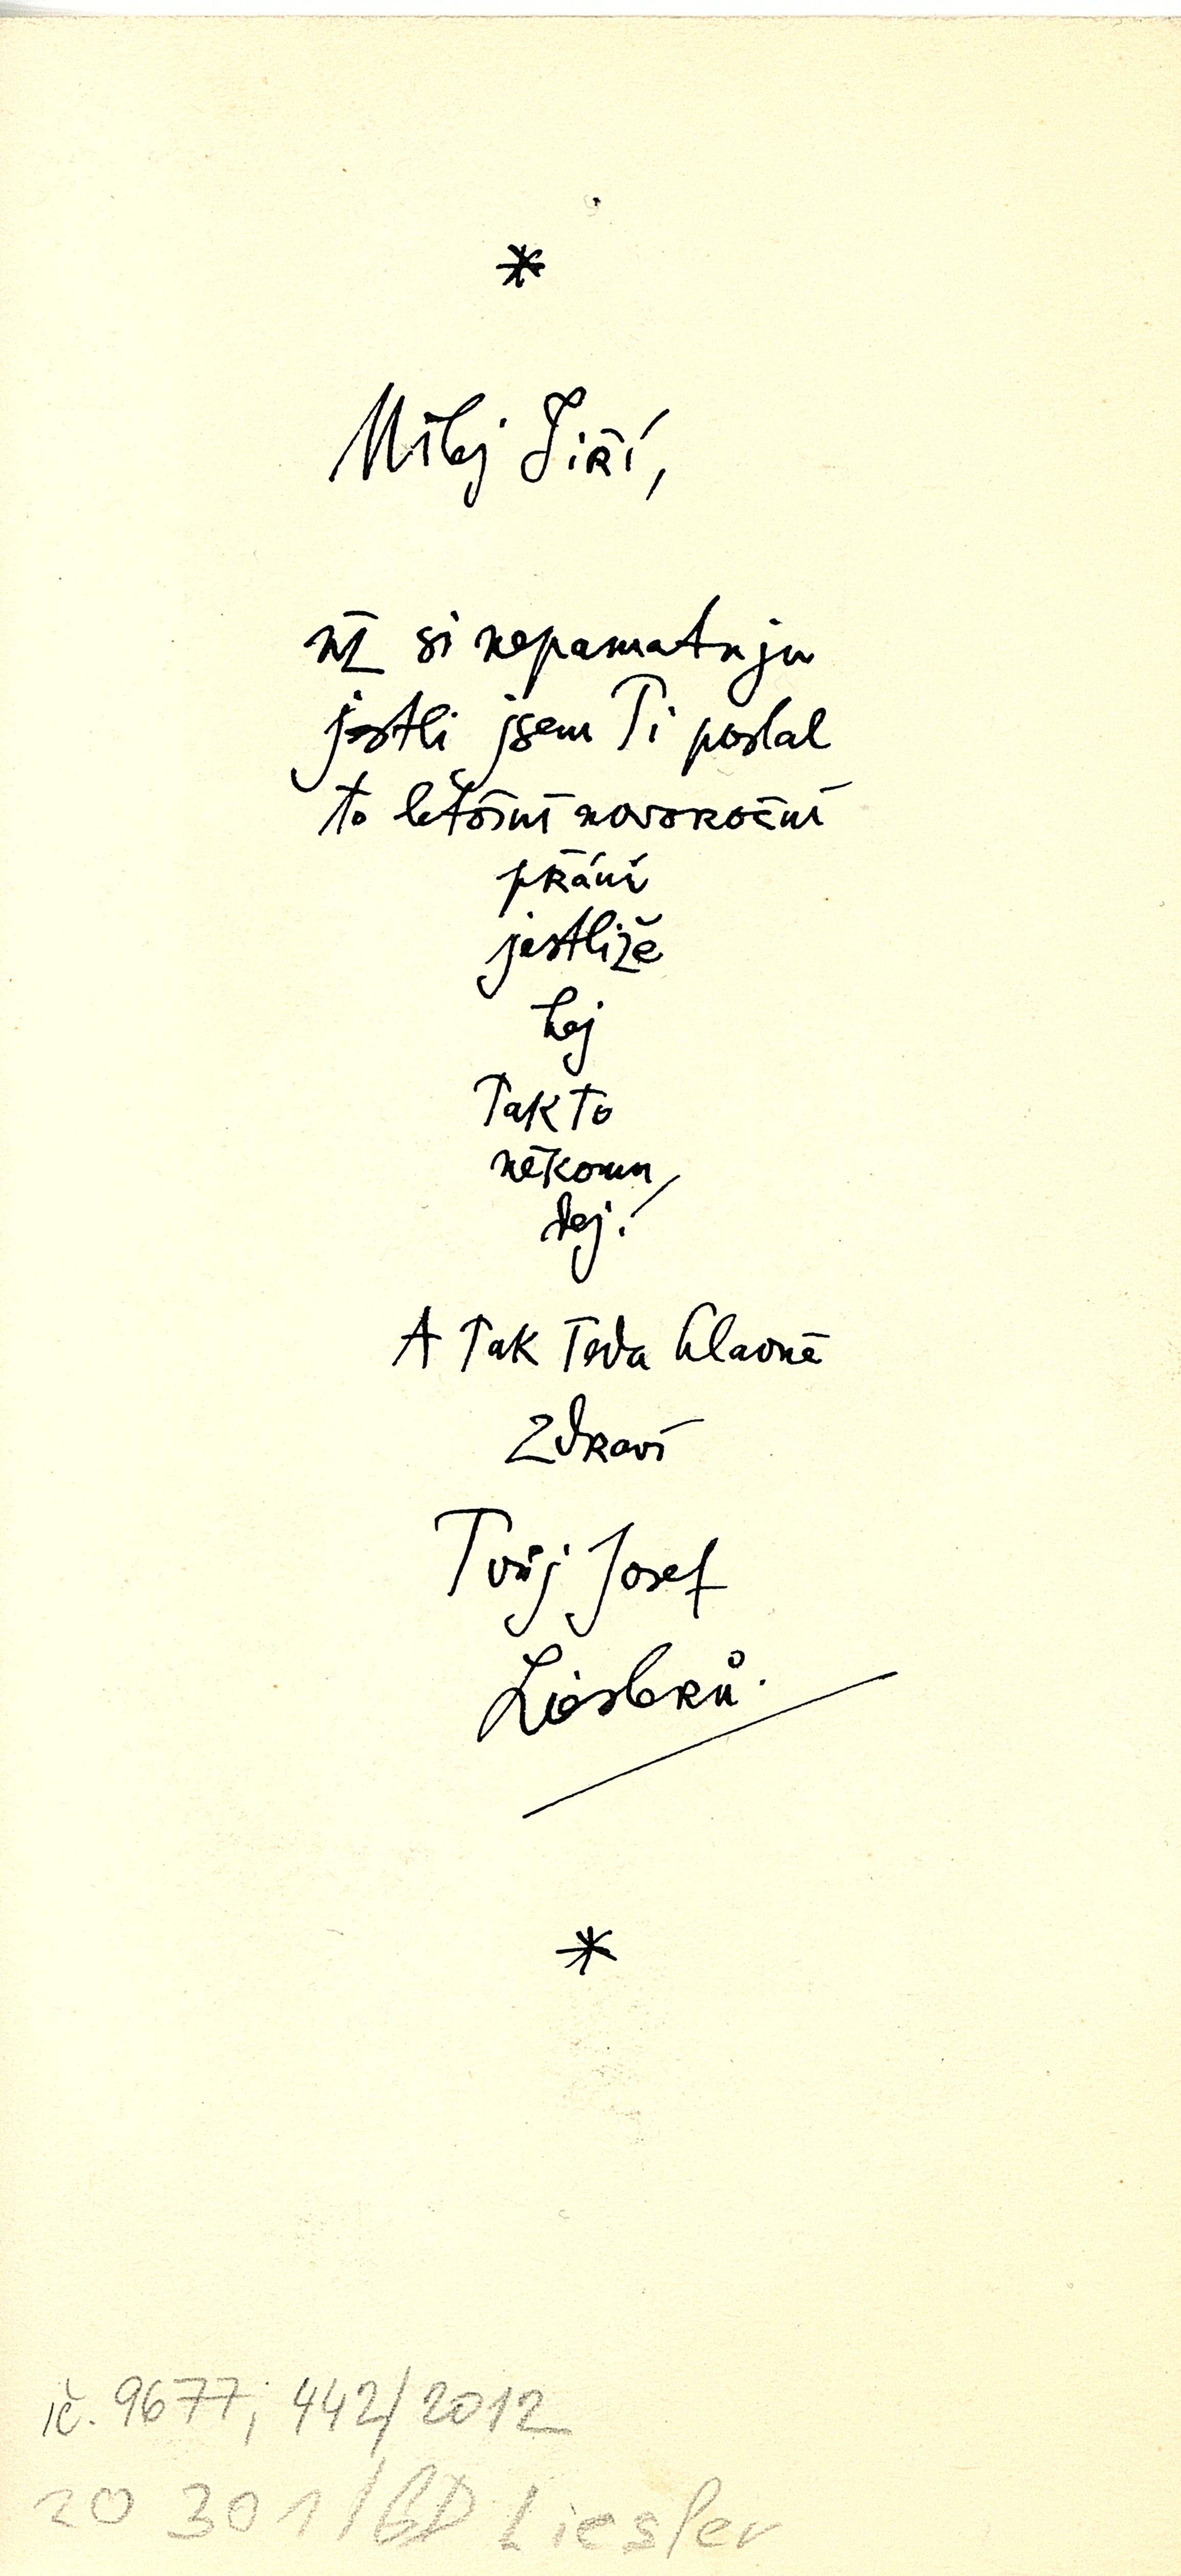 *
Milej Jiří,
už si nepamatuju
jestli jsem Ti poslal
to letošní novoroční
přání
jestliže
hej
Tak to
někomu
dej!
A Tak Teda hlavně
Zdraví
Tvůj Josef
Lieslerů.
*
ič. 9677; 442/2012
20 301/BD Liesler